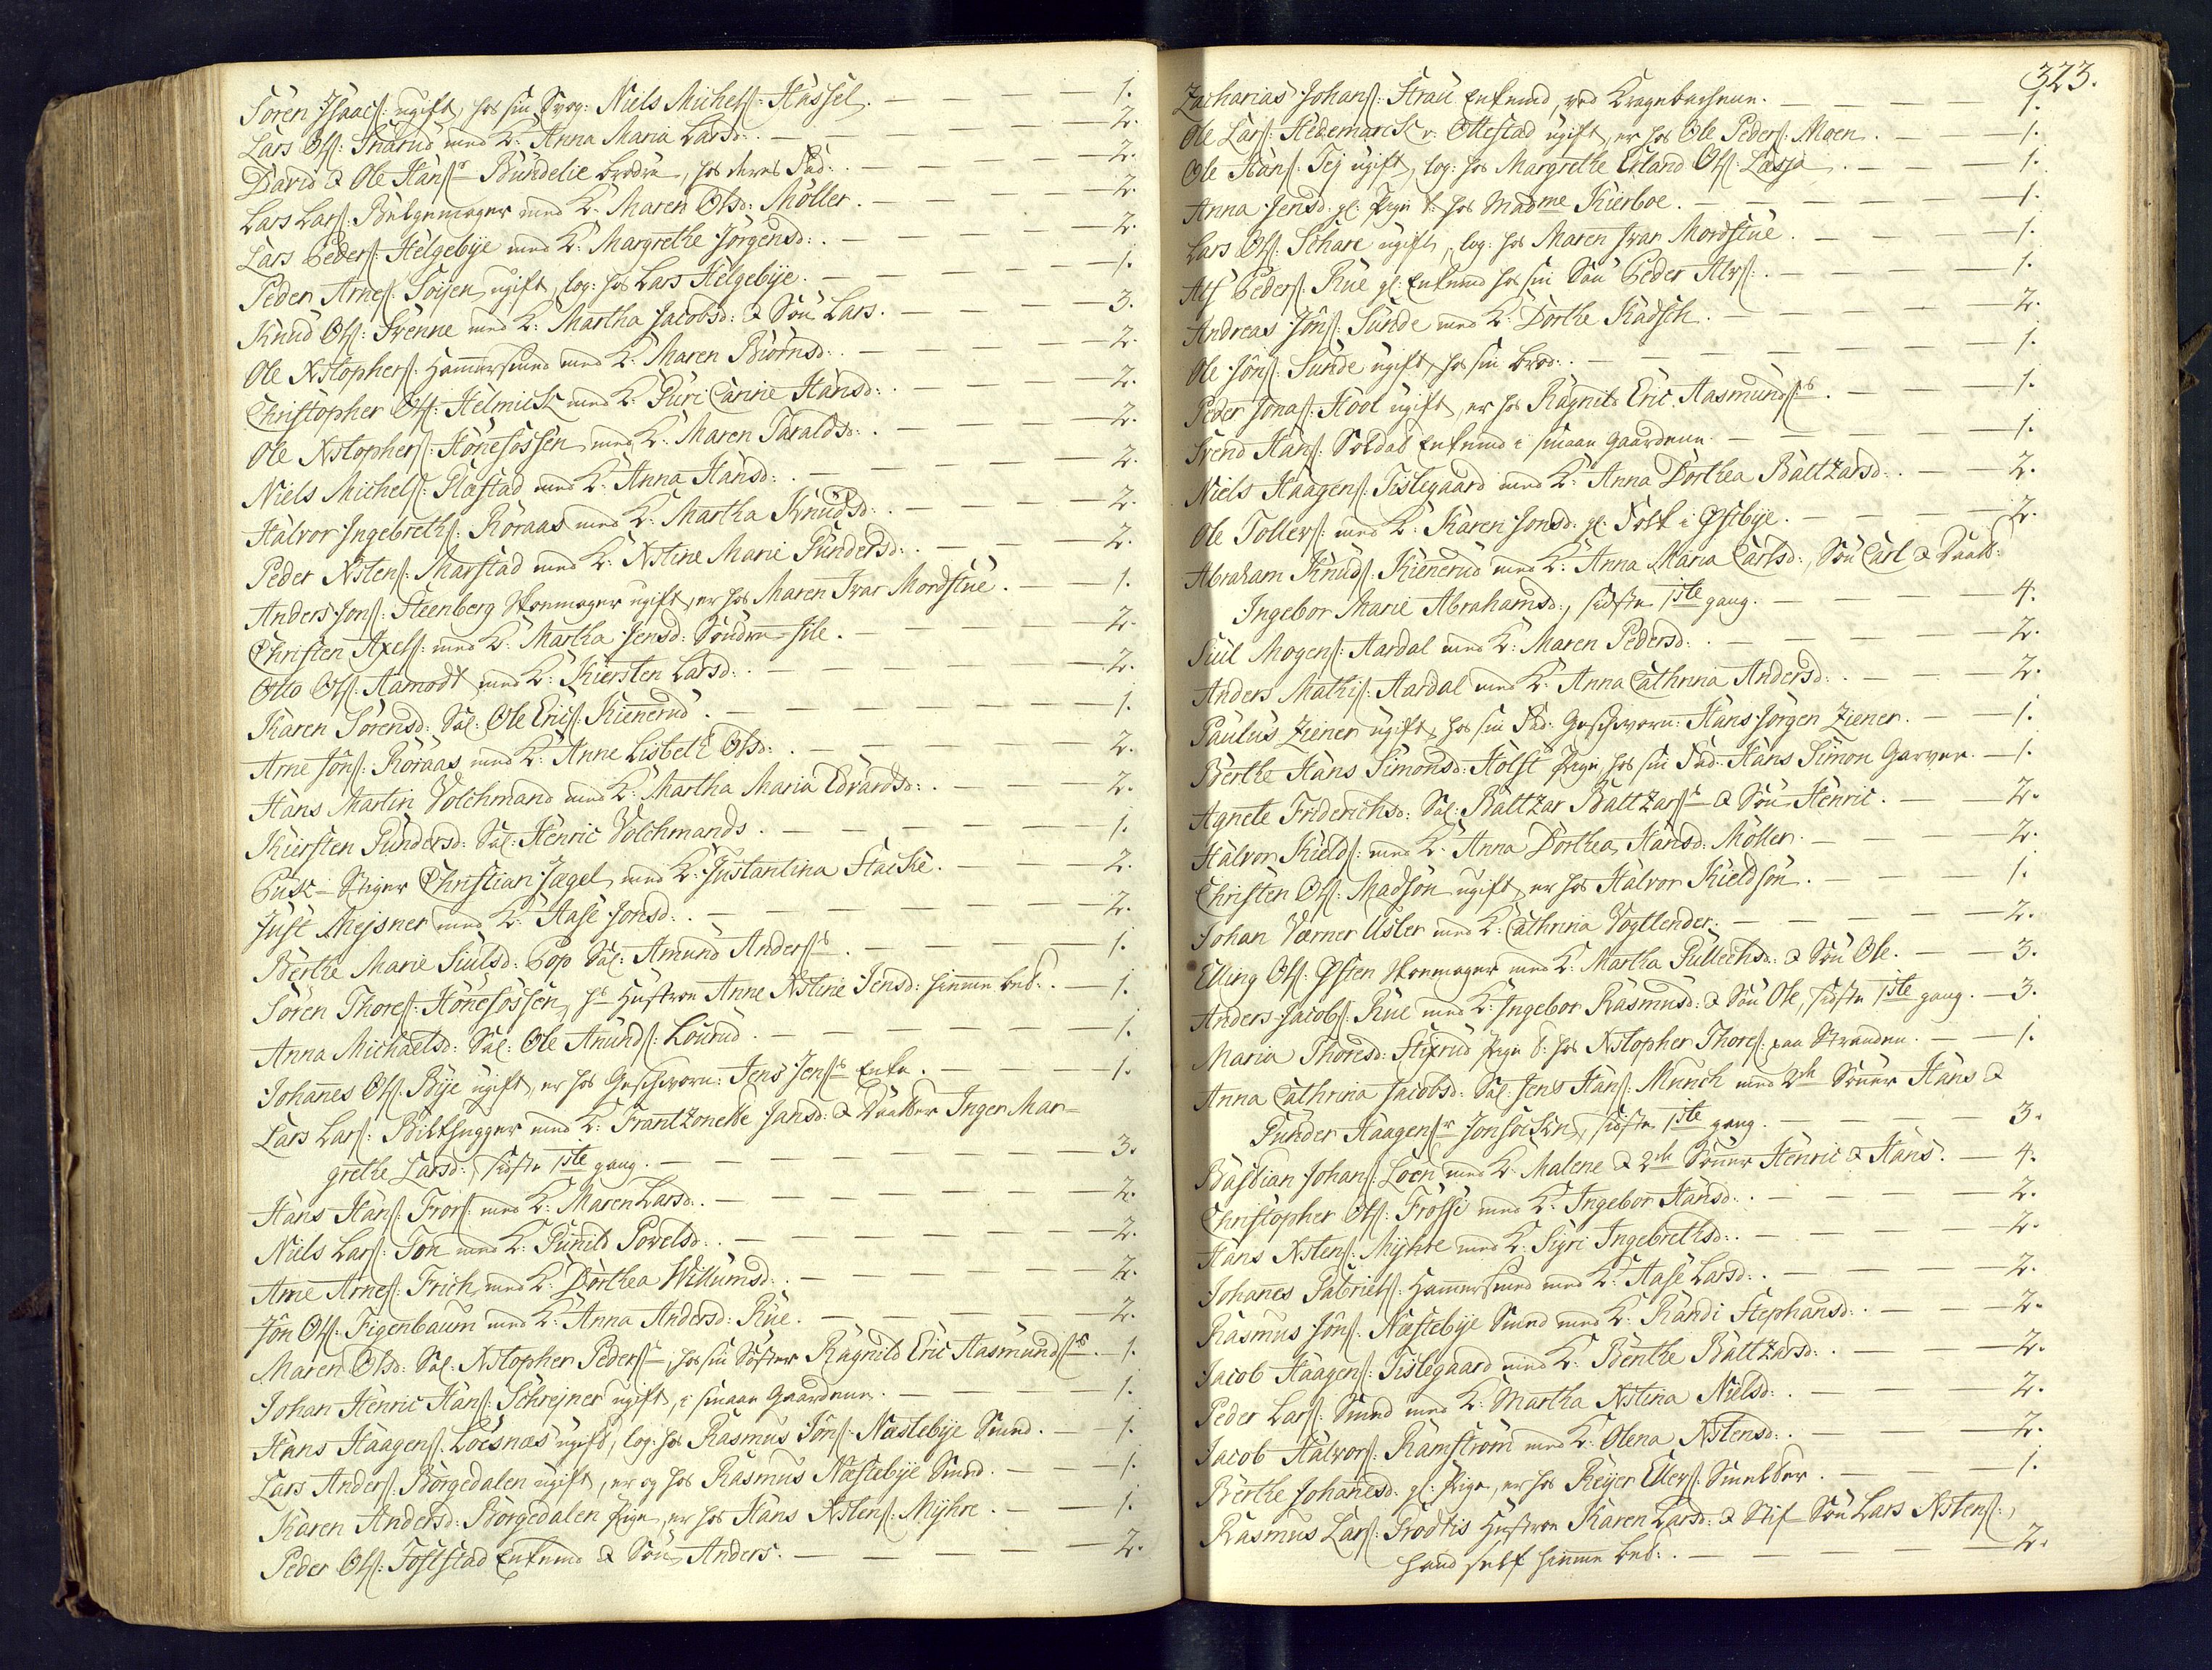 Sören Isaacs: ugift, hos sin Svog: Niels Michels: Hassel. — 1.
Lars Ols: Snarud med K: Anna Maria Larsd: — 2.
David & Ole Hanssr Bündelie brödre, hos deres Fad: — 2.
Lars Lars: Belgemager med K: Maren Olsd: Möller. — 2.
Lars Peders: Helgebÿe med K: Margrethe Jörgensd: — 2.
Peder Arnes: Soÿen, ugift, log: hos Lars Helgebÿe. — 1.
Knud Ols: Svenne med K: Martha Jacobsd: & Sön Lars. — 3.
Ole Xstophers: Hammersmed med K: Maren Biörnsd: — 2.
Christopher Ols: Helmick med K: Guri Carine Hansd: — 2.
Ole Xstophers: Hönefossen med K: Maren Taraldsd: — 2.
Niels Michels: Plæstad med K: Anna Hansd: — 2.
Halvor Ingebreths: Röraas med K: Martha Knudsd: — 2.
Peder Xstens: Marstad med K: Xstine Marie Gundersd: — 2.
Anders Jons: Steenberg Skomager ugift, er hos Maren Ivar Mordstue. — 1.
Christen Axels: med K: Martha Jensd: Söndre-Jile. — 2.
Otto Ols: Aamodt med K: Kiersten Larsd: — 2.
Karen Sörensd: Sal: Ole Erics: Kiennerud. — 1.
Arne Jöns: Röraas med K: Anne Lisbeth Olsd: — 2.
Hans Martin Volchmand med K: Martha Maria Edvardsd: — 2.
Kiersten Gundersd: Sal: Henric Volchmands. — 1.
Puk-Stiger Christian Jægel med K: Justantina Stacke. — 2.
Just Mejsner med K: Aase Jonsd: — 2.
Berthe Marie Siulsd: Pop Sal: Amund Anderss — 1.
Sören Thores: Hönefossen, hs Hustroe Anne Xstine Jensd: hiemme bet: — 1.
Anna Michaelsd: Sal: Ole Amunds: Lourud. — 1.
Johannes Ols: Bÿe ugift, er hos Geschworn: Jens Jenss Enke. — 1.
Lars Lars: Bilthugger med K: Frantzonette Jansd: & Daatter Inger Mar=
grethe Larsd:, sidste 1ste gang. — 3.
Hans Hans: Fros: med K: Maren Larsd: — 2.
Niels Lars: Ton med K: Gunild Povelsd: — 2.
Arne Arnes: Frich, med K: Dorthea Willumsd: — 2.
Jön Ols: Figenbaum med K: Anna Andersd: Rüe. — 2.
Maren Olsd: Sal: Xstopher Peders, hos sin Söster Ragnild Eric Aasmunds. — 1.
Johan Henric Hans: Schrejner ugift, i smaae Gaardene. — 1.
Hans Haagens: Loesnæs ugift, log: hos Rasmus Jöns: Næstebÿe Smed. — 1.
Lars Anders: Borgedalen ugift, er og hos Rasmus Næstebÿe Smed. — 1.
Karen Andersd: Borgedalen Pige, er hos Hans Xstens: Mÿhre. — 1.
Peder Ols: Toststad Enkemd & Sön Anders. — 2.
323.
Zacharias Johans: Strau Enkemd, ved Kragebachene. — 1.
Ole Lars: Hedemarck v: Ottestad ugift, er hos Ole Peders: Moen. — 1.
Ole Hans: Tej ugift, log: hos Margrethe Erland Ols: Læsja. — 1.
Anna Jensd: gl: Pige t: hos Madme Kierboe. — 1.
Lars Ols: Schare ugift, log: hos Maren Ivar Mordstue. — 1.
Alf Peders: Rüe gl: Enkemd hos sin Sön Peder Alvs: — 1.
Andreas Jöns: Sunde med K: Dorthe Kadsch. — 2.
Ole Jöns: Sunde ugift, hos sin brod: — 1.
Peder Jonas: Hool ugift, er hos Ragnild Eric Aasmunds. — 1.
Svend Hans: Soldat Enkemd i smaae gaardene. — 1.
Niels Haagens: Tislegaard med K: Anna Dorthea Baltzarsd: — 2.
Ole Tollevs: med K: Karen Jonsd: gl: Folk i Østbÿe. — 2.
Abraham Knuds: Kienerud med K: Anna Maria Carlsd:, Sön Carl & Daatt:
Ingebor Marie Abrahamsd:, sidste 1ste gang. — 4.
Siul Mogens: Aardal med K: Maren Pedersd: — 2.
Anders Mathis: Aardal med K: Anna Cathrina Andersd: — 2.
Paulus Ziener ugift, hos sin Fad: Geschworn: Hans Jörgen Ziener. — 1.
Berthe Hans Simonsd: Holst Pige hos sin Fad: Hans Simon Garver. — 1.
Agnete Friderichsd: Sal: Baltzar Baltzars & Sön Henric. — 2.
Halvor Kields: med K: Anna Dorthea Hansd: Möller. — 2.
Christen Ols: Madsön ugift, er hos Halvor Kieldsön. — 1.
Johan Værner Usler med K: Cathrina Vogtlender. — 2.
Elling Ols: Østen Skomager med K: Martha Gullechsd: & Sön Ole. — 3.
Anders Jacobs: Rüe med K: Ingebor Rasmusd: & Sön Ole, sidste 1ste gang. — 3.
Maria Thoresd: Stixrud Pige t: hos Xstopher Thores: paa Stranden. — 1.
Anna Cathrina Jacobsd: Sal: Jens Hans: Munch med 2de Sönner Hans &
Gunder Haagensr Jonsocken, sidste 1ste gang. — 3.
Bastian Johans: Loen med K: Malene & 2de Sönner Henric & Hans. — 4.
Christopher Ols: Frösse med K: Ingebor Hansd: — 2.
Hans Xstens: Mÿhre med K: Sigri Ingebrethsd: — 2.
Johannes Gabriels: Hammersmed med K: Aase Larsd: — 2.
Rasmus Jöns: Næstebÿe Smed med K: Randi Stephansd: — 2.
Jacob Haagens: Tislegaard med K: Benthe Baltzarsd: — 2.
Peder Lars: Smed med K: Martha Xstina Nielsd: — 2.
Jacob Halvors: Ramström med K: Olena Xstensd: — 2.
Berthe Johannesd: gl: Pige, er hos Reÿer Ellevs: Smelter. — 1.
Rasmus Lars: Grodtis Hustroe Karen Larsd: & Stif-Sön Lars Xstens:,
hand self hiemme bet: — 2.